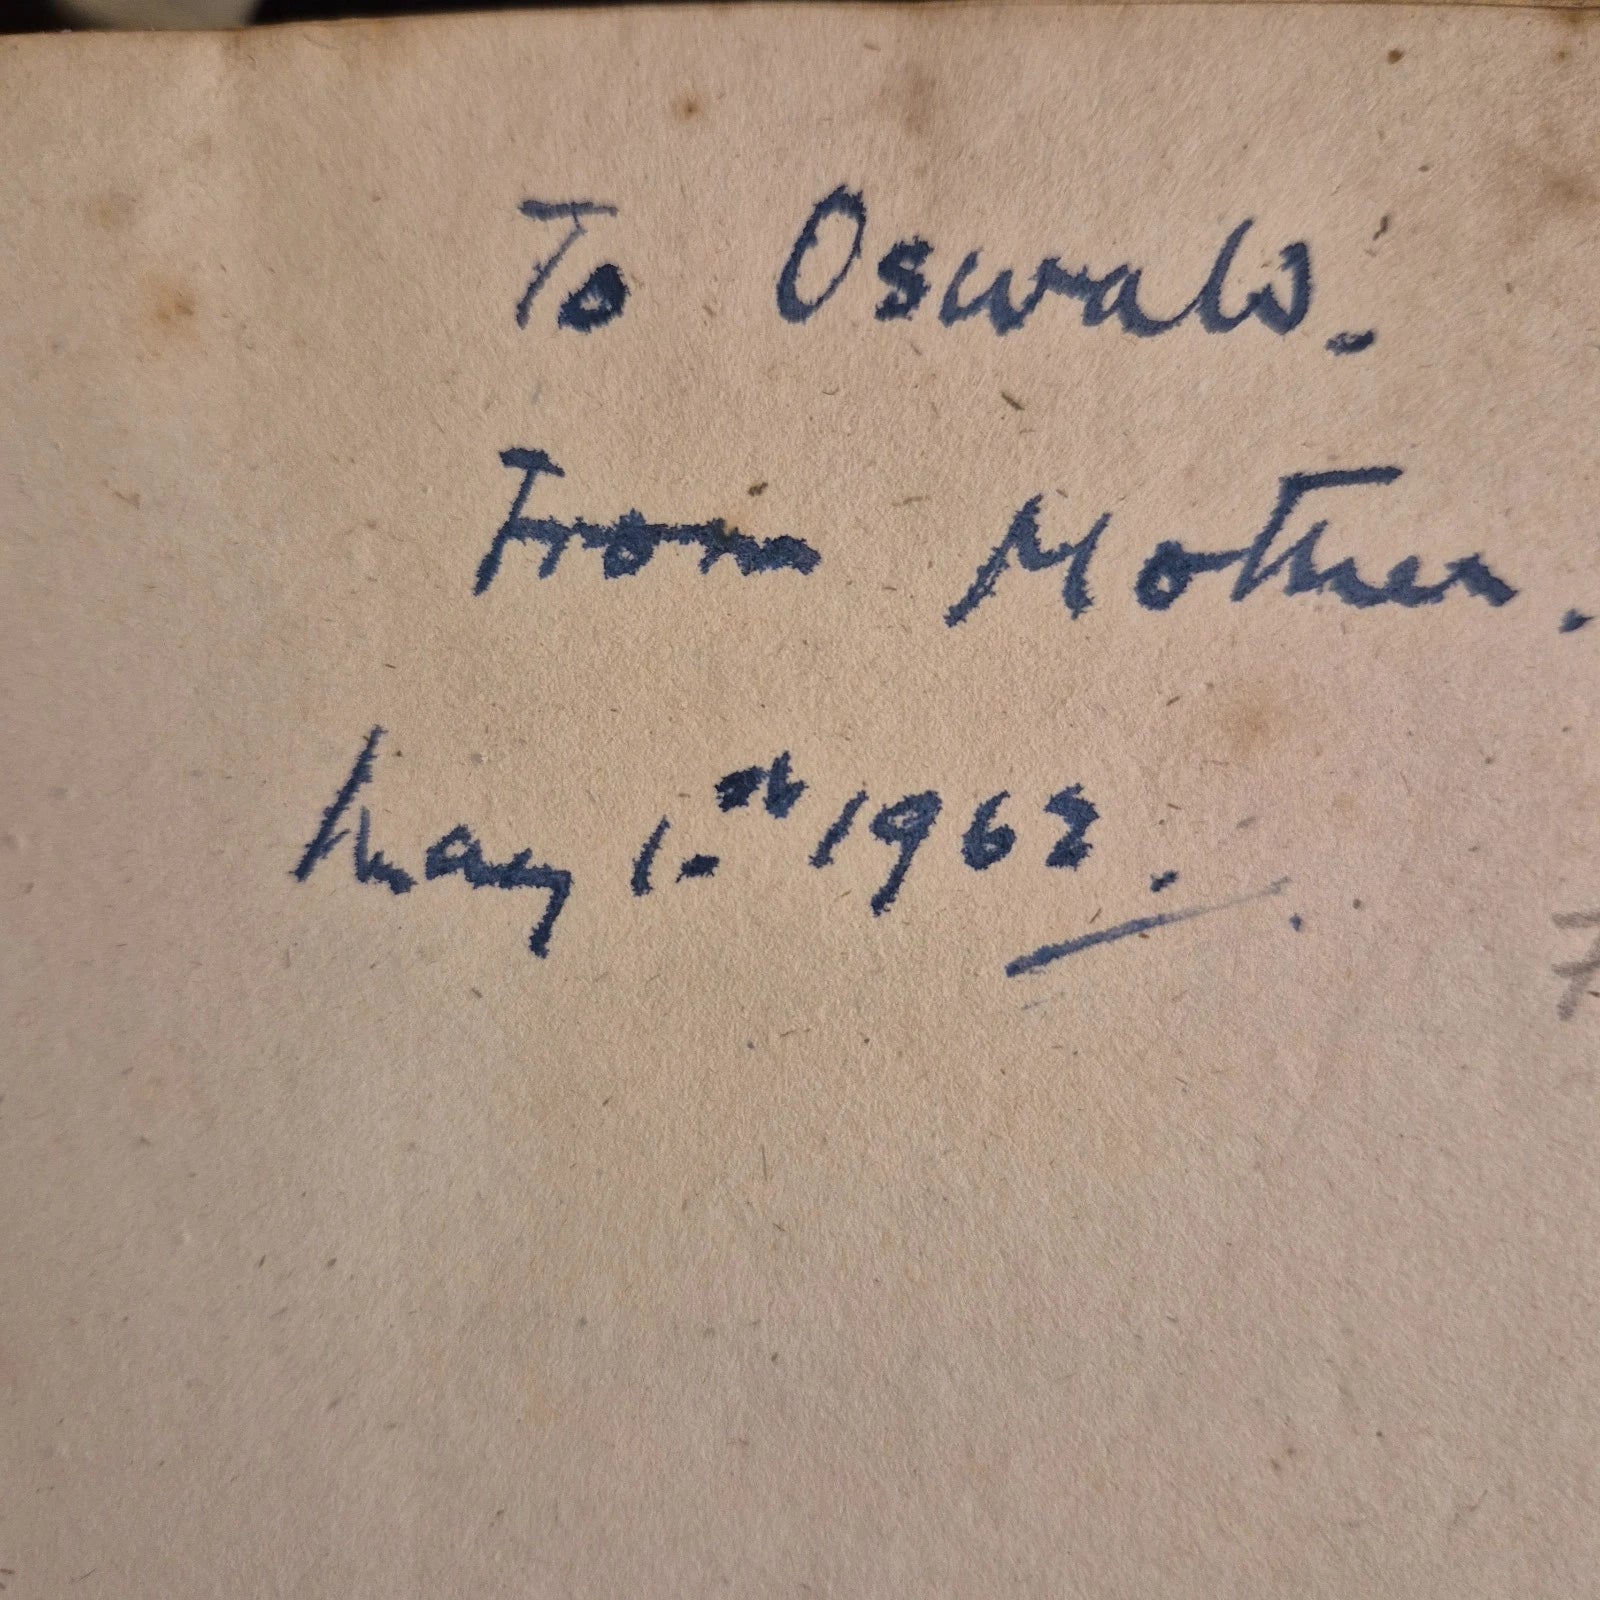 To Oswald.
From Mother.
May 1.st 1962.
7